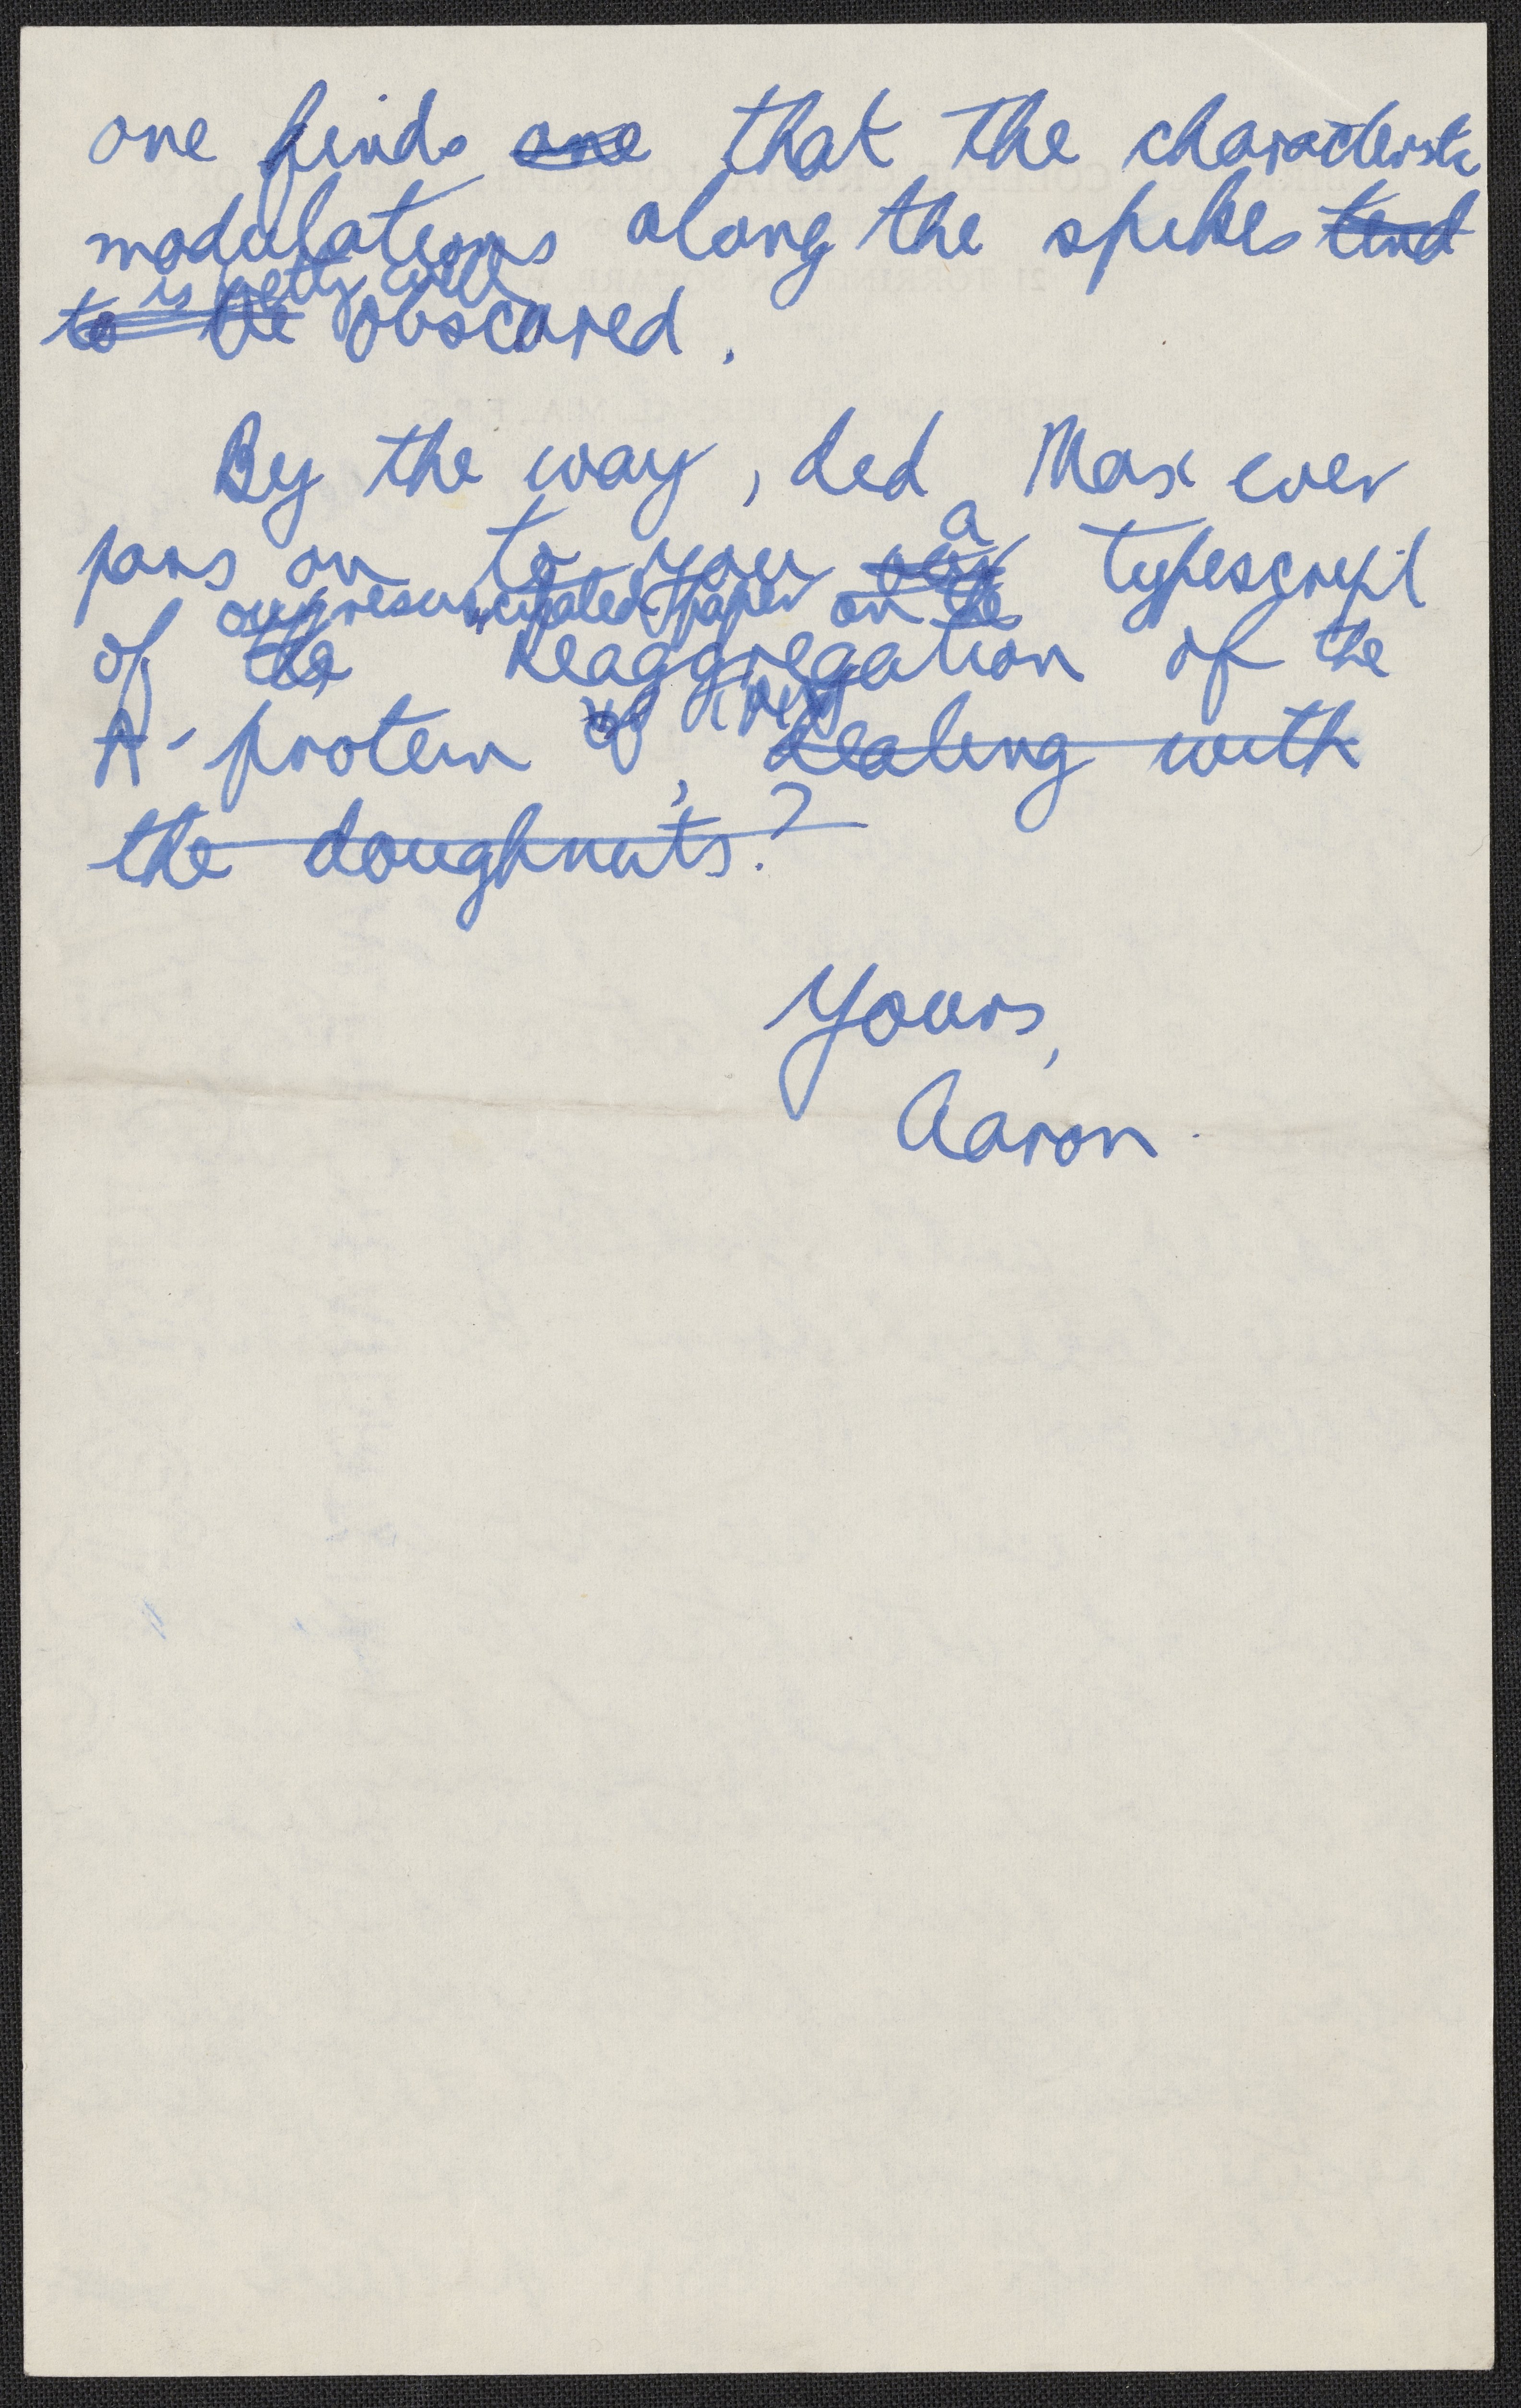 one finds one that the characteristic
modulations along the spikes tend
is pretty well
to be obscured.
By the way, did Max ever
a
pass on to you typescript
our resuscitated paper on the
of the Reaggregation of the
A-protein of TMV, dealing with
the doughnuts?
Yours,
Aaron.